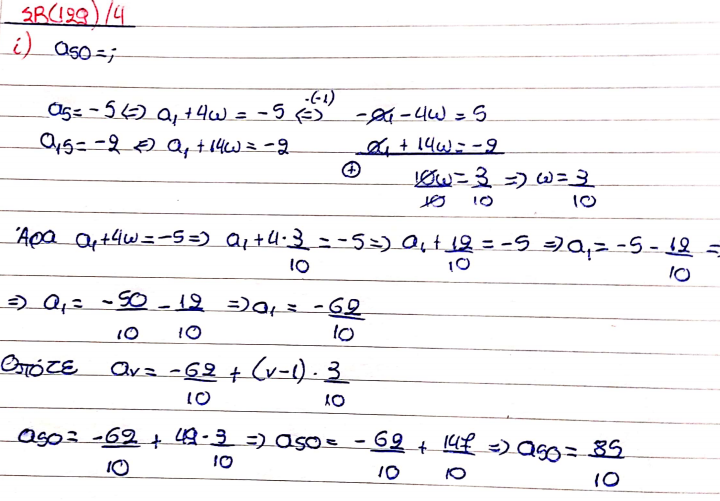 ΣΒ(129)/4
i) α50=;
α5=-5 ⇔ α1+4ω=-5 ⇔ ·(-1) -α1-4ω=5
α15=-2 ⇔ α1+14ω=-2 α1+14ω=-2
⊕ 10ω/10=3/10 ⇒ ω=3/10
Άρα α1+4ω=-5 ⇒ α1+4·3/10=-5 ⇒ α1+12/10=-5 ⇒ α1=-5-12/10 ⇒
⇒ α1=-50/10-12/10 ⇒ α1=-62/10
Οπότε αν=-62/10+(ν-1)·3/10
α50=-62/10+49·3/10 ⇒ α50=-62/10+147/10 ⇒ α50=85/10